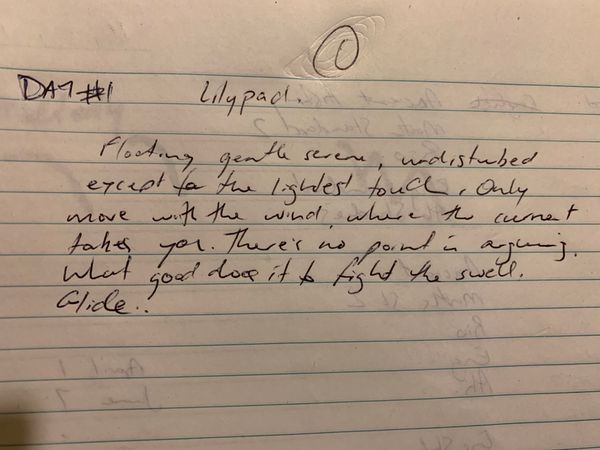 1
DAY #1 Lilypad.
Floating gentle serene, undisturbed
except for the lightest touch. Only
move with the wind, where the current
takes you. There's no point in arguing.
What good does it to fight the swell.
Glide..